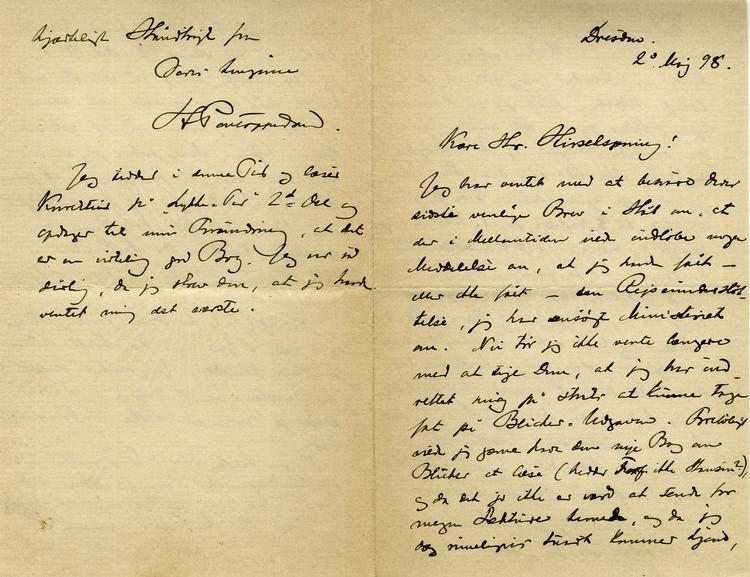 Dresden.
2º Maj 98.
Kære Hr. Hirschsprung!
Jeg har ventet med at besvare Deres
sidste venlige Brev i Håb om, at
der i Mellemtiden vilde indløbe nogen
Meddelelse om, at jeg havde fået –
eller ikke fået – den Rejseunderstøt-
telse, jeg har ansøgt Ministeriet
om. Nu tør jeg ikke vente længere
med at sige Dem, at jeg har ind-
rettet mig på straks at kunne tage
fat på Blicher-Udgaven. Foreløbig
vilde jeg gerne have den nye Bog om
Blicher at læse (hedder Forf. ikke Hansen?),
og da det jo ikke er værd at sende for
megen Lekture herned, og da jeg
dog rimeligvis snart kommer hjem,
hjærteligst Håndtryk fra
Deres hengivne
H Pontoppidan.
Jeg sidder i denne Tid og læser
Korrektur på "Lykke-Per" 2d Del og
opdager til min Forundring, at det
er en virkelig god Bog. Jeg var så
dårlig, da jeg skrev den, at jeg havde
ventet mig det værste.